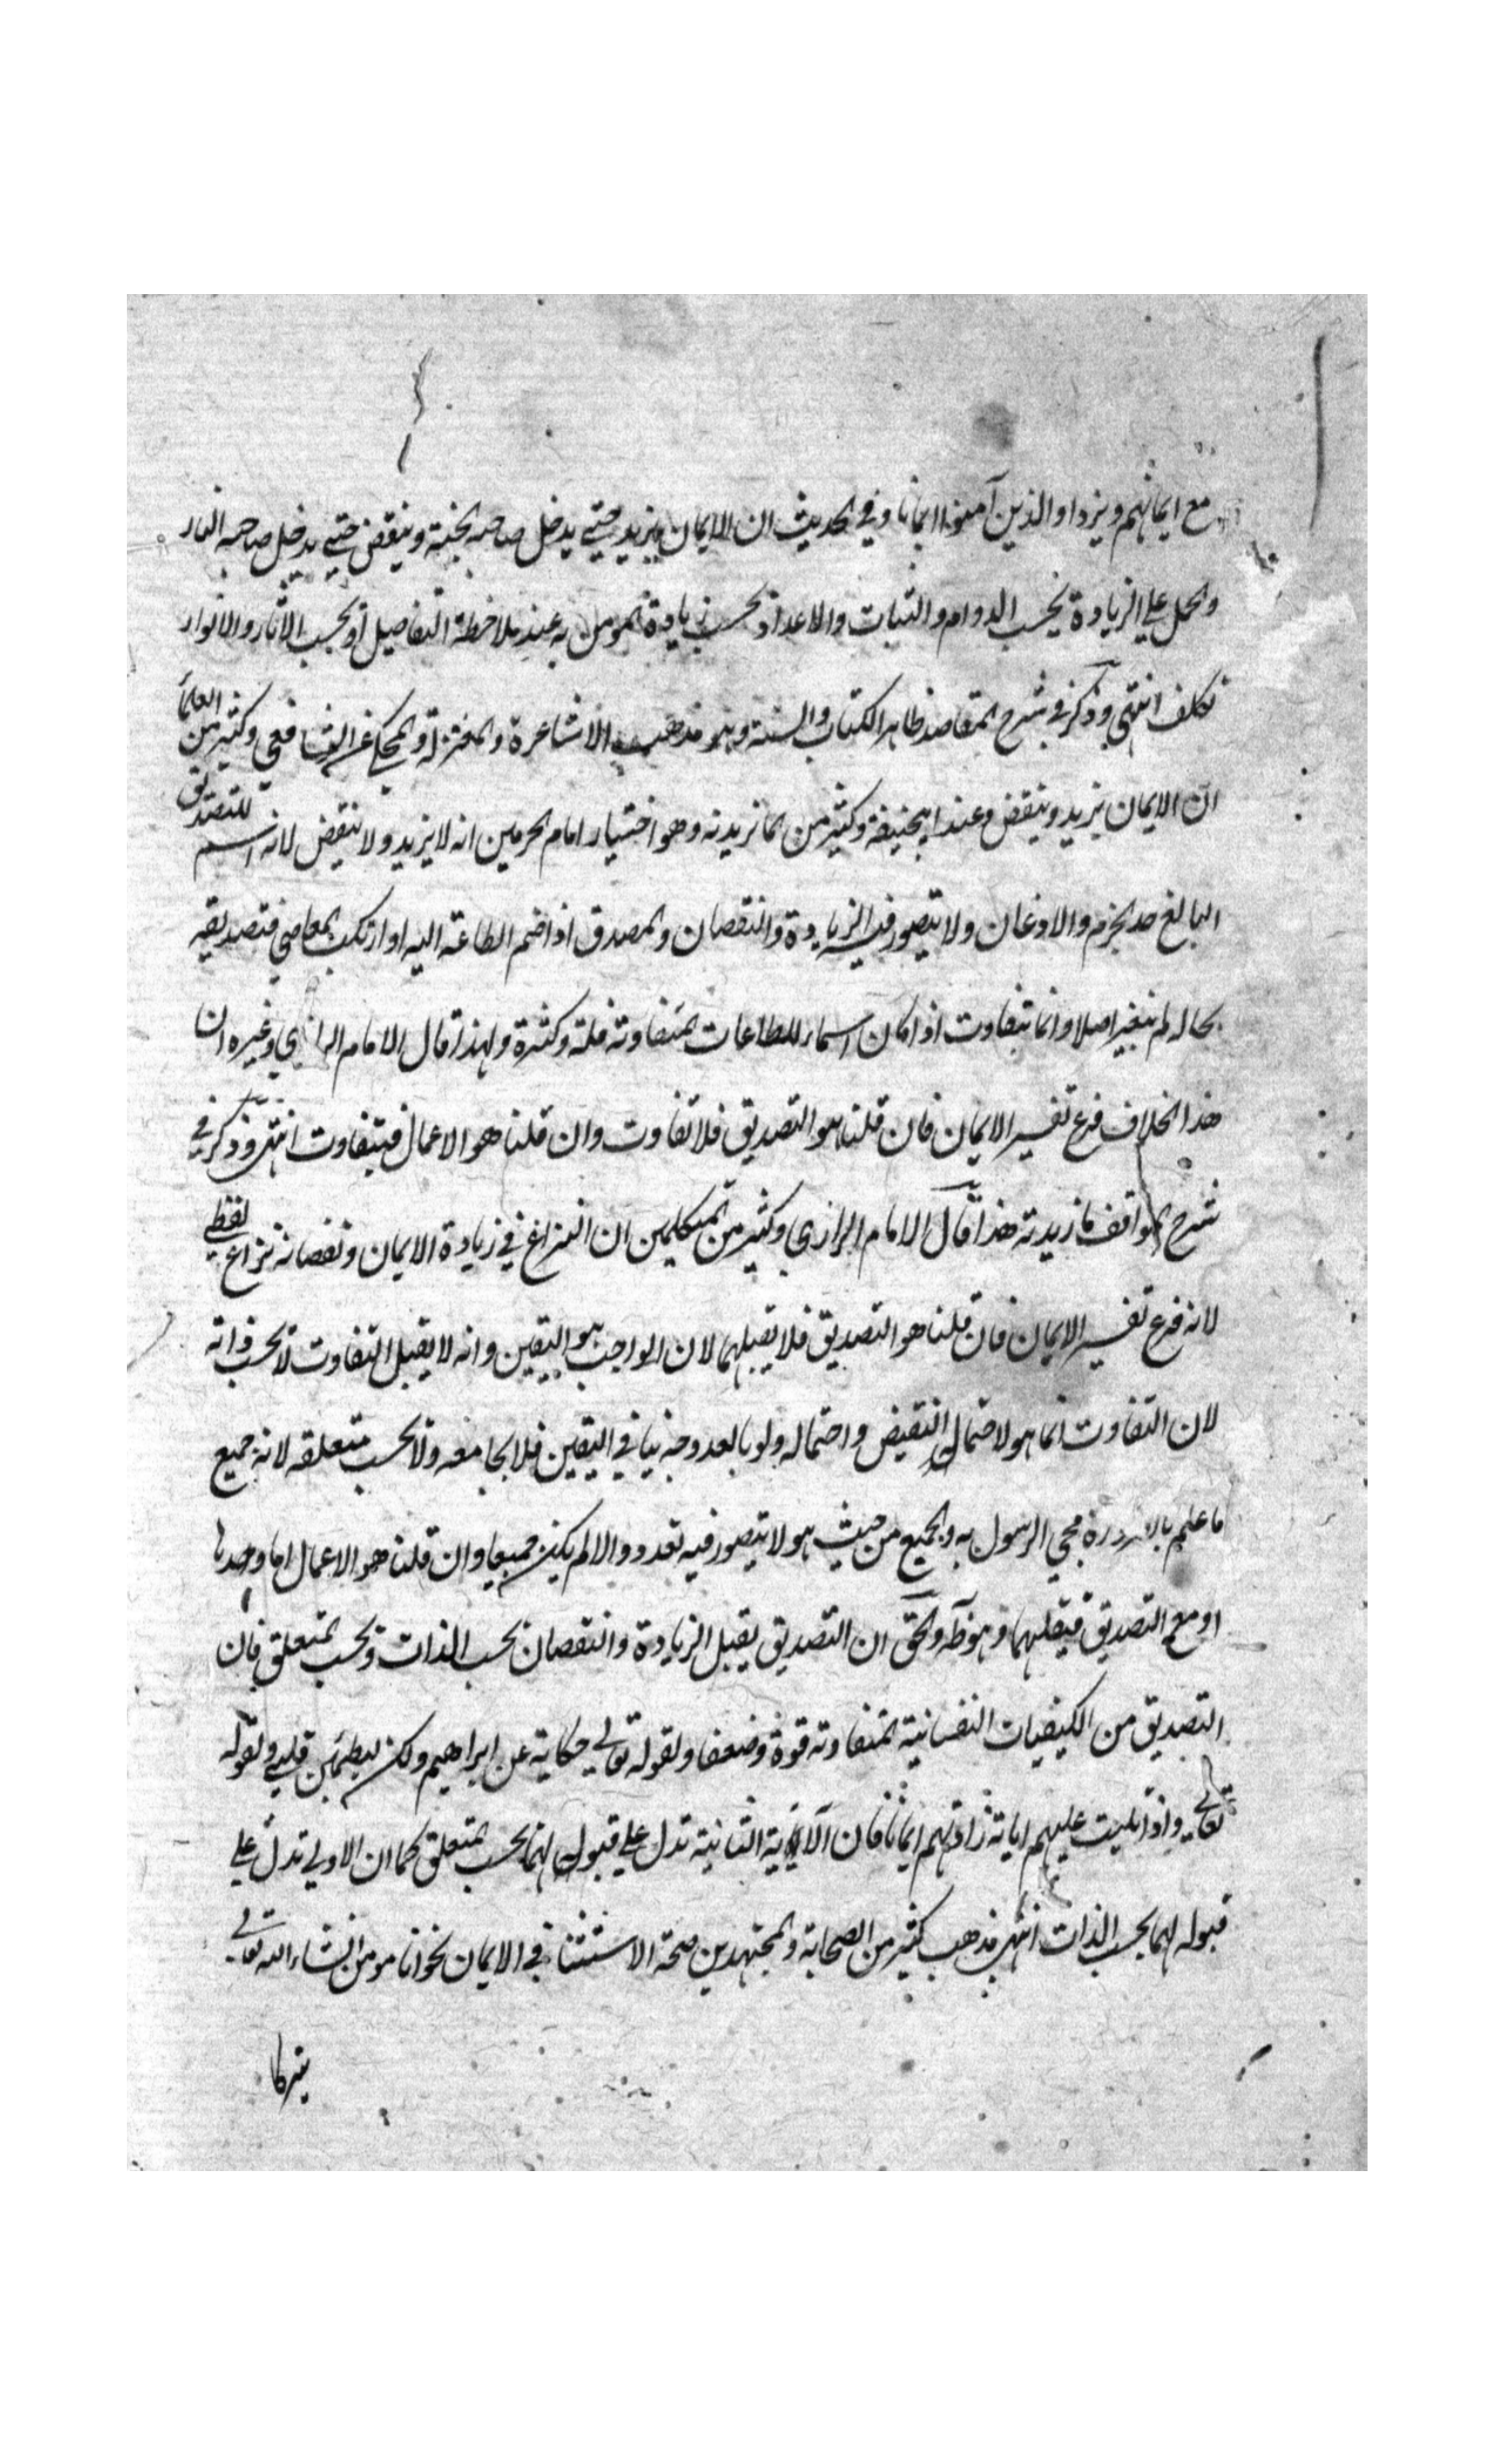 مع ايمانهم ويزداد الذين آمنوا ايمانا وفي الحديث ان الايمان يزيد حتي يدخل صاحبه الجنة وينقض حتي يدخل صاحبه النار
والحمل علي الزيادة بحسب الدوام والثبات والاعداد بحسب زيادة المومن به عند ملاحظة التفاصيل او بحسب الاثار والانوار
تكلف انتهي وذكر في شرح المقاصد ظاهر الكتاب والسنة وهو مذهب الاشاعرة والمعتزلة والمحكي عن الشافعي وكثير من العلمأ
ان الايمان يزيد وينقض وعند ابيحنيفة وكثير من الماتريدية وهو اختيار امام الحرمين انه لا يزيد ولا ينقض لانه اسم للتصديق
البالغ حد الجزم والاذعان ولا يتصور فيه الزيادة والنقصان والمصدق اذا ضم الطاعة اليه او ارتكب المعاصي فتصديقه
بحاله لم يتغير اصلا وانما يتفاوت اذا كان اسما للطاعات المتفاوتة قلة وكثرة ولهذا قال الامام الرازي وغيره ان
هذا الخلاف فرع تفسير الايمان فان قلنا هو التصديق فلا تفاوت وان قلنا هو الاعمال فيتفاوت انتهي وذكر في
شرح المواقف ما زيدته هذا قال الامام الرازي وكثير من المتكلمين ان النزاع في زيادة الايمان ونقصانه نزاع لفظي
لانه فرع تفسير الايمان فان قلنا هو التصديق فلا يقبلهما لان الواجب هو اليقين وانه لا يقبل التفاوت لا بحسب ذاته
لان التفاوت انما هو لاحتمال النقيض واحتماله ولو بابعد وجه ينافي اليقين فلا يجامعه ولا بحسب متعلقه لانه جميع
ما علم بالضرورة مجي الرسول به والجميع من حيث هو لا يتصور فيه تعدد والا لم يكن جميعا وان قلنا هو الاعمال اما وحدها
او مع التصديق فيقبلهما وهو ظه والحق ان التصديق يقبل الزيادة والنقصان بحسب الذات وبحسب المتعلق فان
التصديق من الكيفيات النفسانية المتفاوتة قوة وضعفا ولقوله تعالي حكاية عن ابراهيم ولكن ليطمئن قلبي ولقوله
تعالي واذا تليت عليهم اياته زادتهم ايمانا فان الآية الثانية تدل علي قبول لهما بحسب المتعلق كما ان الاولي تدل علي
قبوله لهما بحسب الذات انتهي مذهب كثير من الصحابة والمجتهدين صحة الاستثنا في الايمان نحو انا مومن انشاء الله تعالي
تبركا